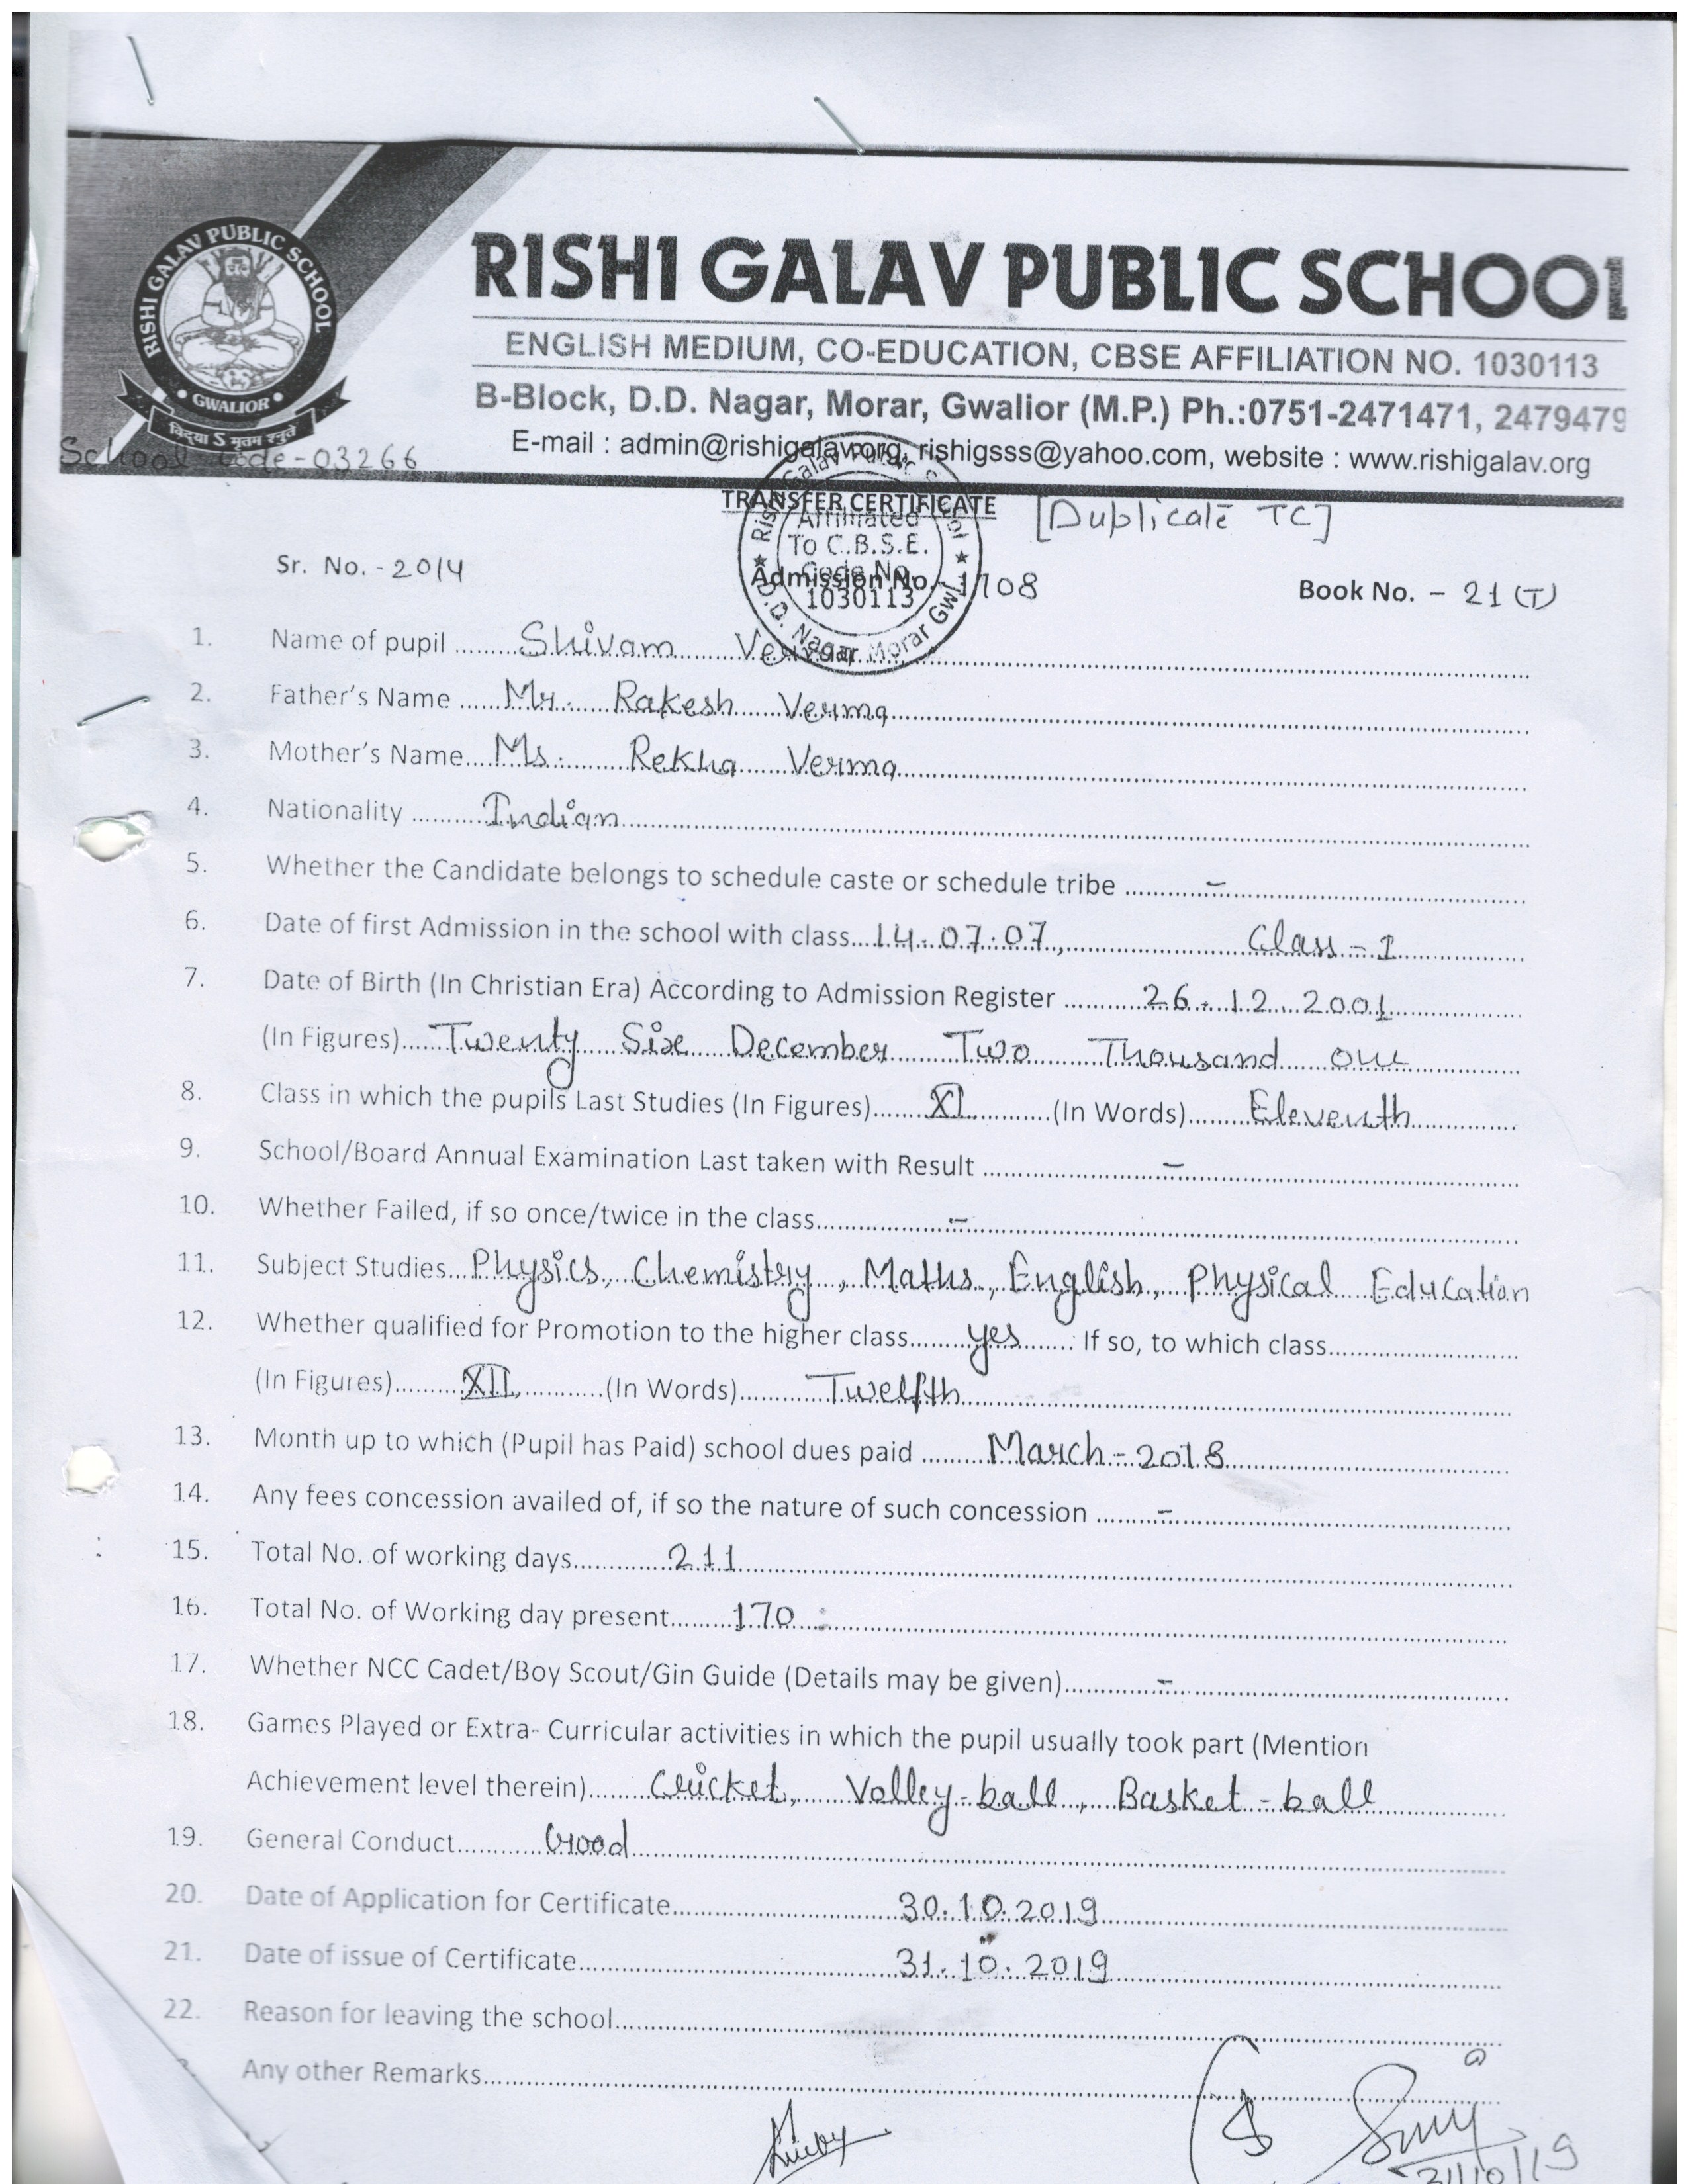 RISHI GALAV PUBLIC SCHOOL
GWALIOR
विद्या S मृतम श्नुते
RISHI GALAV PUBLIC SCHOOL
ENGLISH MEDIUM, CO-EDUCATION, CBSE AFFILIATION NO. 1030113
B-Block, D.D. Nagar, Morar, Gwalior (M.P.) Ph.:0751-2471471, 2479479
E-mail : admin@rishigalav.org, rishigsss@yahoo.com, website : www.rishigalav.org
School Code-03266
TRANSFER CERTIFICATE [Duplicate TC]
Rishi Galav Public School
Affiliated
To C.B.S.E.
Code No.
1030113
D.D. Nagar Morar Gwl.
Sr. No. - 2014 Admission No. - 1708 Book No. - 21 (T)
1. Name of pupil ........ Shivam Verma
2. Father's Name ...... Mr. Rakesh Verma
3. Mother's Name.... Ms. Rekha Verma
4. Nationality .......... Indian
5. Whether the Candidate belongs to schedule caste or schedule tribe ............ –
6. Date of first Admission in the school with class... 14.07.07, Class - I
7. Date of Birth (In Christian Era) According to Admission Register .......... 26.12.2001
(In Figures).... Twenty Six December Two Thousand one
8. Class in which the pupils Last Studies (In Figures)....... XI ...........(In Words)....... Eleventh
9. School/Board Annual Examination Last taken with Result ........ –
10. Whether Failed, if so once/twice in the class........ –
11. Subject Studies... Physics, Chemistry, Maths, English, Physical Education
12. Whether qualified for Promotion to the higher class....... yes ....... If so, to which class........
(In Figures)......... XII, ...........(In Words).......... Twelfth
13. Month up to which (Pupil has Paid) school dues paid ......... March-2018
14. Any fees concession availed of, if so the nature of such concession ........ –
15. Total No. of working days............ 211
16. Total No. of Working day present........ 170
17. Whether NCC Cadet/Boy Scout/Gin Guide (Details may be given)........ –
18. Games Played or Extra- Curricular activities in which the pupil usually took part (Mention
Achievement level therein)...... Cricket, Volley-ball, Basket-ball
19. General Conduct........... Good
20. Date of Application for Certificate........ 30.10.2019
21. Date of issue of Certificate........ 31.10.2019
22. Reason for leaving the school........
Any other Remarks........
31/10/19